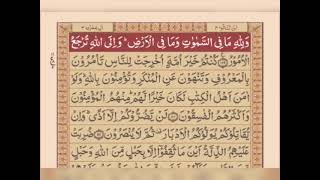 وَلِلّٰهِ مَا فِی السَّمٰوٰتِ وَمَا فِی الْاَرْضِ ؕ وَاِلَی اللّٰهِ تُرْجَعُ
الْاُمُوْرُ كُنْتُمْ خَیْرَ اُمَّةٍ اُخْرِجَتْ لِلنَّاسِ تَاْمُرُوْنَ
بِالْمَعْرُوْفِ وَتَنْهَوْنَ عَنِ الْمُنْكَرِ وَتُؤْمِنُوْنَ بِاللّٰهِ ؕ وَلَوْ
اٰمَنَ اَهْلُ الْكِتٰبِ لَكَانَ خَیْرًا لَّهُمْ ؕ مِنْهُمُ الْمُؤْمِنُوْنَ
وَاَكْثَرُهُمُ الْفٰسِقُوْنَ لَنْ یَّضُرُّوْكُمْ اِلَّاۤ اَذًی ؕ وَاِنْ
یُّقَاتِلُوْكُمْ یُوَلُّوْكُمُ الْاَدْبَارَ ۟ ثُمَّ لَا یُنْصَرُوْنَ ضُرِبَتْ
عَلَیْهِمُ الذِّلَّةُ اَیْنَ مَا ثُقِفُوْۤا اِلَّا بِحَبْلٍ مِّنَ اللّٰهِ وَحَبْلٍ